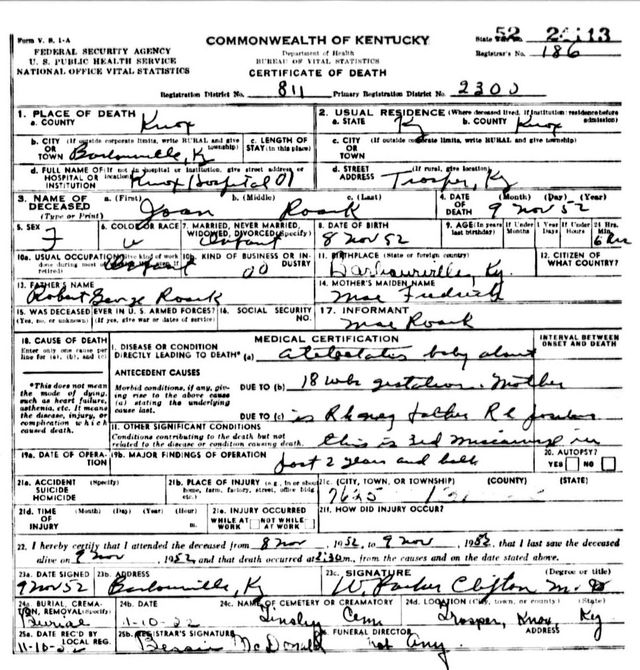 Form V. S. 1-A
COMMONWEALTH OF KENTUCKY
State No. 52 24113
FEDERAL SECURITY AGENCY
Department of Health
Registrar's No. 186
U. S. PUBLIC HEALTH SERVICE
BUREAU OF VITAL STATISTICS
NATIONAL OFFICE VITAL STATISTICS
CERTIFICATE OF DEATH
Registration District No. 811 Primary Registration District No. 2300
1. PLACE OF DEATH
a. COUNTY Knox
2. USUAL RESIDENCE (Where deceased lived. If institution: residence before admission)
a. STATE Ky b. COUNTY Knox
b. CITY (If outside corporate limits, write RURAL and give township) OR TOWN Barbourville, Ky
c. LENGTH OF STAY (in this place)
c. CITY (If outside corporate limits, write RURAL and give township) OR TOWN
d. FULL NAME OF (If not in hospital or institution, give street address or location) HOSPITAL OR INSTITUTION Knox Hospital
d. STREET ADDRESS (If rural, give location) Trosper, Ky
3. NAME OF DECEASED (Type or Print)
a. (First) Joan b. (Middle) c. (Last) Roark
4. DATE OF DEATH (Month) (Day) (Year) 9 Nov 52
5. SEX F
6. COLOR OR RACE W
7. MARRIED, NEVER MARRIED, WIDOWED, DIVORCED (Specify) Infant
8. DATE OF BIRTH 8 Nov 52
9. AGE (In years last birthday) If Under 1 Year Months Days If Under 24 Hrs. Hours Min. 6 hrs
10a. USUAL OCCUPATION (Give kind of work done during most of retired) Infant
10b. KIND OF BUSINESS OR INDUSTRY 00
11. BIRTHPLACE (State or foreign country) Barbourville, Ky.
12. CITIZEN OF WHAT COUNTRY?
13. FATHER'S NAME Robert George Roark
14. MOTHER'S MAIDEN NAME Mae
15. WAS DECEASED EVER IN U. S. ARMED FORCES? (Yes, no, or unknown) (If yes, give war or dates of service)
16. SOCIAL SECURITY NO.
17. INFORMANT Mae Roark
18. CAUSE OF DEATH
Enter only one cause per line for (a), (b), and (c)
MEDICAL CERTIFICATION
INTERVAL BETWEEN ONSET AND DEATH
I. DISEASE OR CONDITION DIRECTLY LEADING TO DEATH* (a) Atelectatis baby about
*This does not mean the mode of dying, such as heart failure, asthenia, etc. It means the disease, injury, or complication which caused death.
ANTECEDENT CAUSES
Morbid conditions, if any, giving rise to the above cause (a) stating the underlying cause last.
DUE TO (b) 18 wks gestation. Mother
DUE TO (c) is Rh neg father Rh positive
II. OTHER SIGNIFICANT CONDITIONS
Conditions contributing to the death but not related to the disease or condition causing death.
this is 3rd miscarriage in
19a. DATE OF OPERATION
19b. MAJOR FINDINGS OF OPERATION
past 2 years and half
20. AUTOPSY? YES NO
21a. ACCIDENT SUICIDE HOMICIDE (Specify)
21b. PLACE OF INJURY (e.g., in or about home, farm, factory, street, office bldg etc.)
21c. (CITY, TOWN, OR TOWNSHIP) (COUNTY) (STATE)
7625
21d. TIME OF INJURY (Month) (Day) (Year) (Hour) m.
21e. INJURY OCCURRED WHILE AT WORK NOT WHILE AT WORK
21f. HOW DID INJURY OCCUR?
22. I hereby certify that I attended the deceased from 8 Nov, 1952, to 9 Nov, 1952, that I last saw the deceased
alive on 9 Nov, 1952 and that death occurred at 2:30 m., from the causes and on the date stated above.
23a. DATE SIGNED 9 Nov 52
23b. ADDRESS Barbourville, Ky
23c. SIGNATURE (Degree or title) W. Parker Clifton M. D
24a. BURIAL, CREMATION, REMOVAL (Specify) Burial
24b. DATE 11-10-52
24c. NAME OF CEMETERY OR CREMATORY Tinsley Cem
24d. LOCATION (City, town, or county) (State) Trosper, Knox, Ky
25a. DATE REC'D BY LOCAL REG. 11-10-52
25b. REGISTRAR'S SIGNATURE Bessie McDonald
26. FUNERAL DIRECTOR ADDRESS not Any